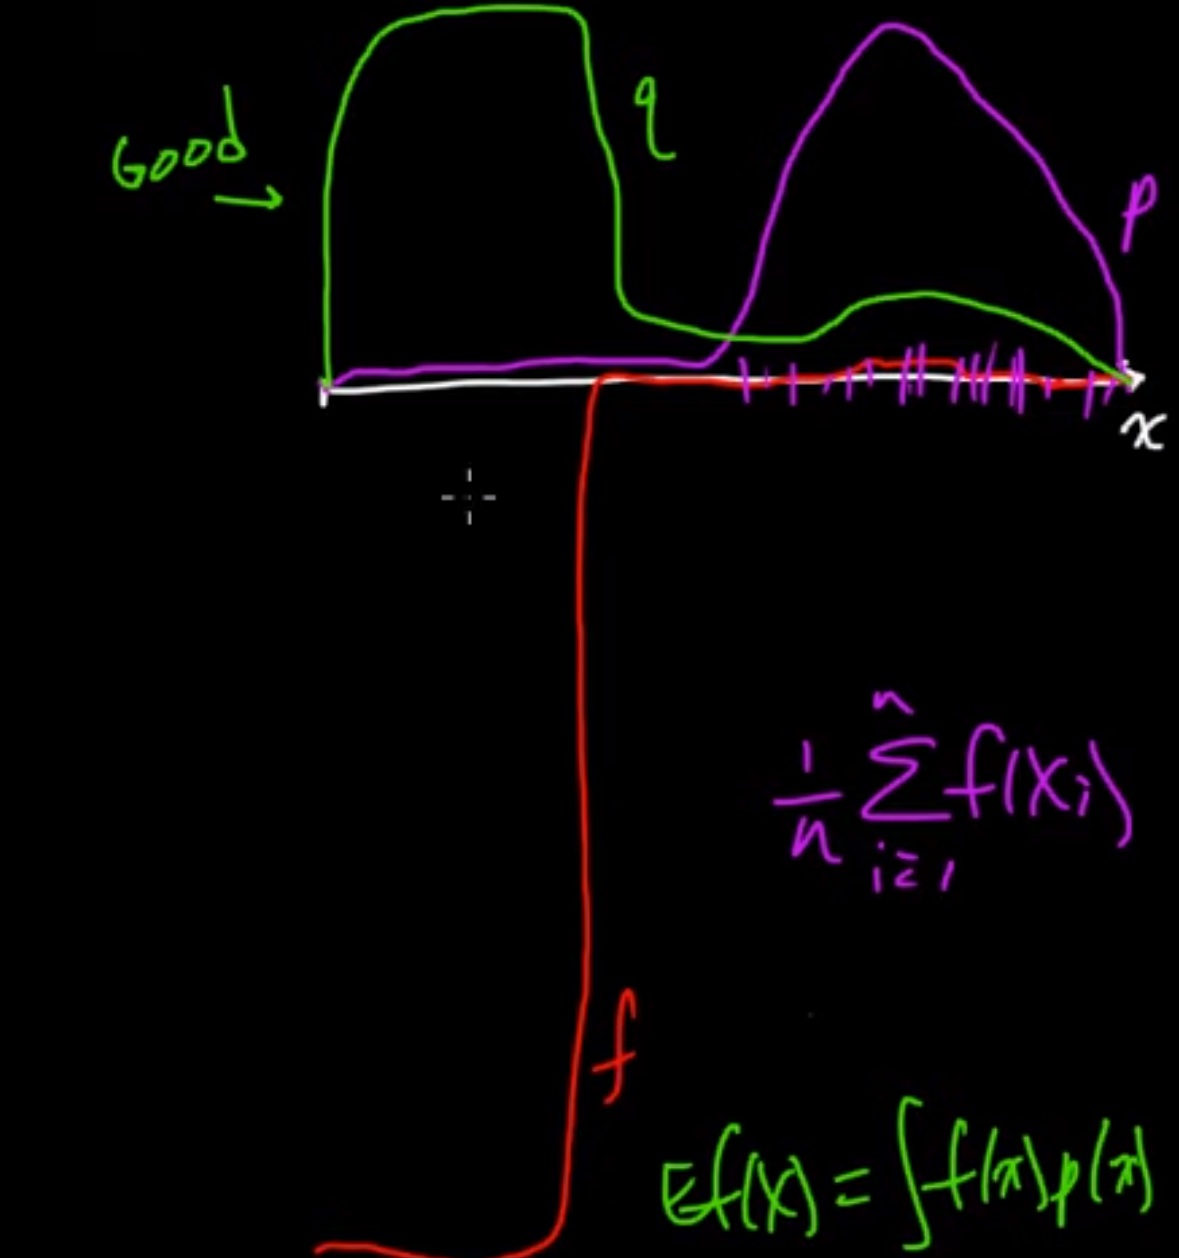 Good →
q
p
x
1/n ∑_{i=1}^{n} f(X_i)
f
Ef(X) = ∫f(x)p(x)